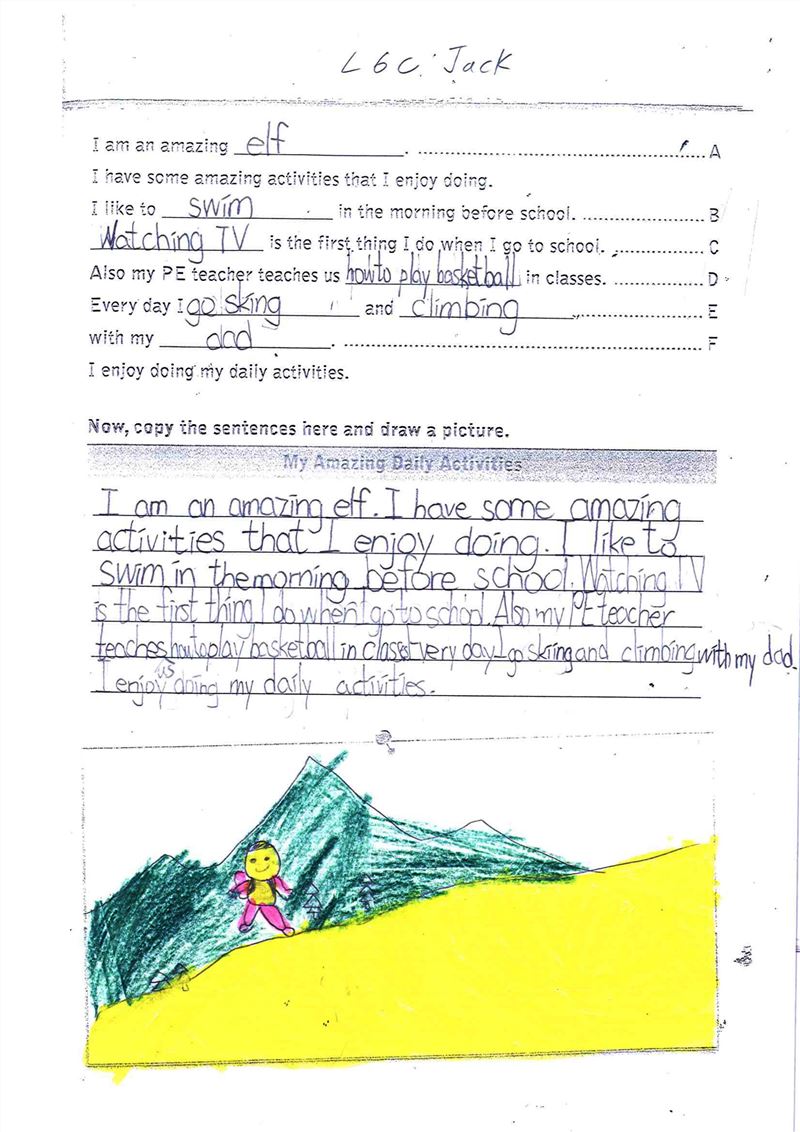 L6C Jack
I am an amazing elf. A
I have some amazing activities that I enjoy doing.
I like to swim in the morning before school. B
Watching TV is the first thing I do when I go to school. C
Also my PE teacher teaches us how to play basketball in classes. D
Every day I go sking and climbing E
with my dad. F
I enjoy doing my daily activities.
Now, copy the sentences here and draw a picture.
My Amazing Daily Activities
I am an amazing elf. I have some amazing
activities that I enjoy doing. I like to
swim in the morning before school. Watching TV
is the first thing I do when I go to school. Also my PE teacher
teaches us how to play basketball in classes. Every day I go skiing and climbing with my dad.
I enjoy doing my daily activities.